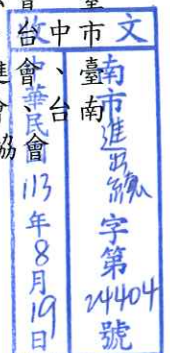 台中市
會、臺
會、台南
協會
收文
中華民國113年8月19日
南市進出總字第24404號